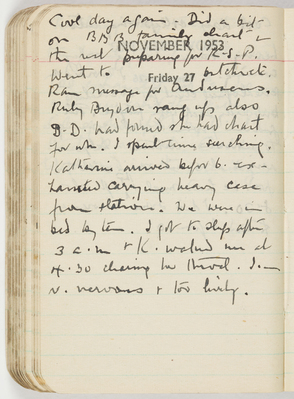 Cool day again. Did a bit
on BAB family chart &
the rest preparing for R-S-P.
NOVEMBER 1953
Went to
Friday 27
Ran message for
Ruby Brydon rang up also
B.D. had found she had chart
for who. I spent time searching.
Katharine arrived before 6. ex-
hausted carrying heavy case
from station. We were in
bed by ten. I got to sleep after
3 a.m & K. waked me at
4.30 clearing her throat. I am
v. nervous & too lively.